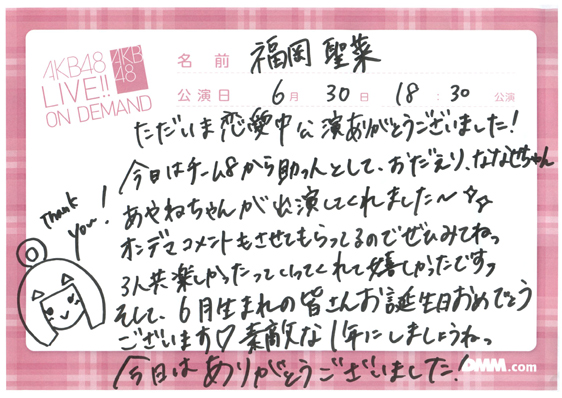 AKB48
LIVE!!
ON DEMAND
AKB
48
名前 福岡 聖菜
公演日 6月 30日 18:30 公演
ただいま恋愛中公演ありがとうございました!
今日はチーム8から助っ人として、おだえり、ななせちゃん
あやねちゃんが出演してくれました〜☆☆
オンデマコメントもさせてもらってるのでぜひみてねっ
3人共楽しかったっていってくれて嬉しかったですっ
そして、6月生まれの皆さんお誕生日おめでとう
ございます♡素敵な1年にしましょうねっ
今日はありがとうございました!
Thank
you!
DMM.com